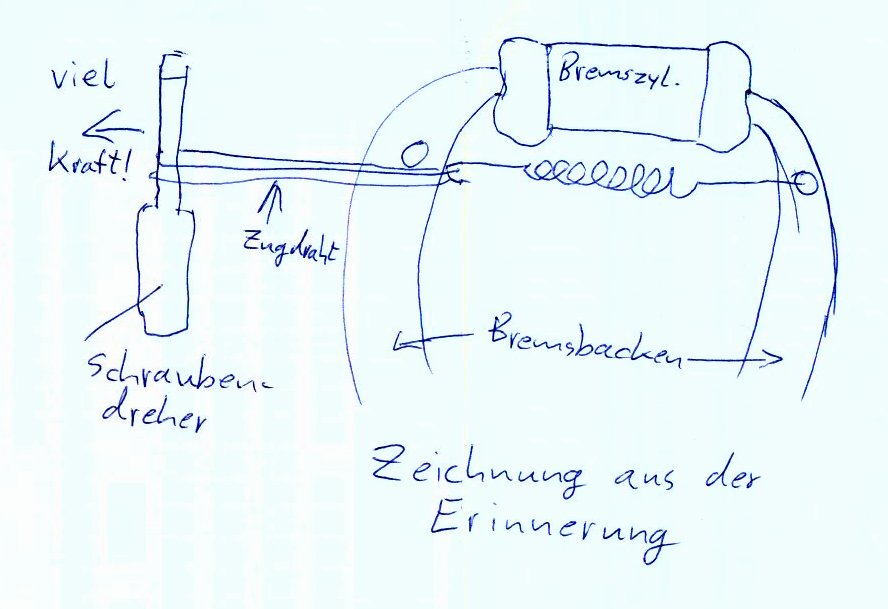 viel
Kraft!
Bremszyl.
Zugdraht
Bremsbacken
Schrauben-
dreher
Zeichnung aus der
Erinnerung